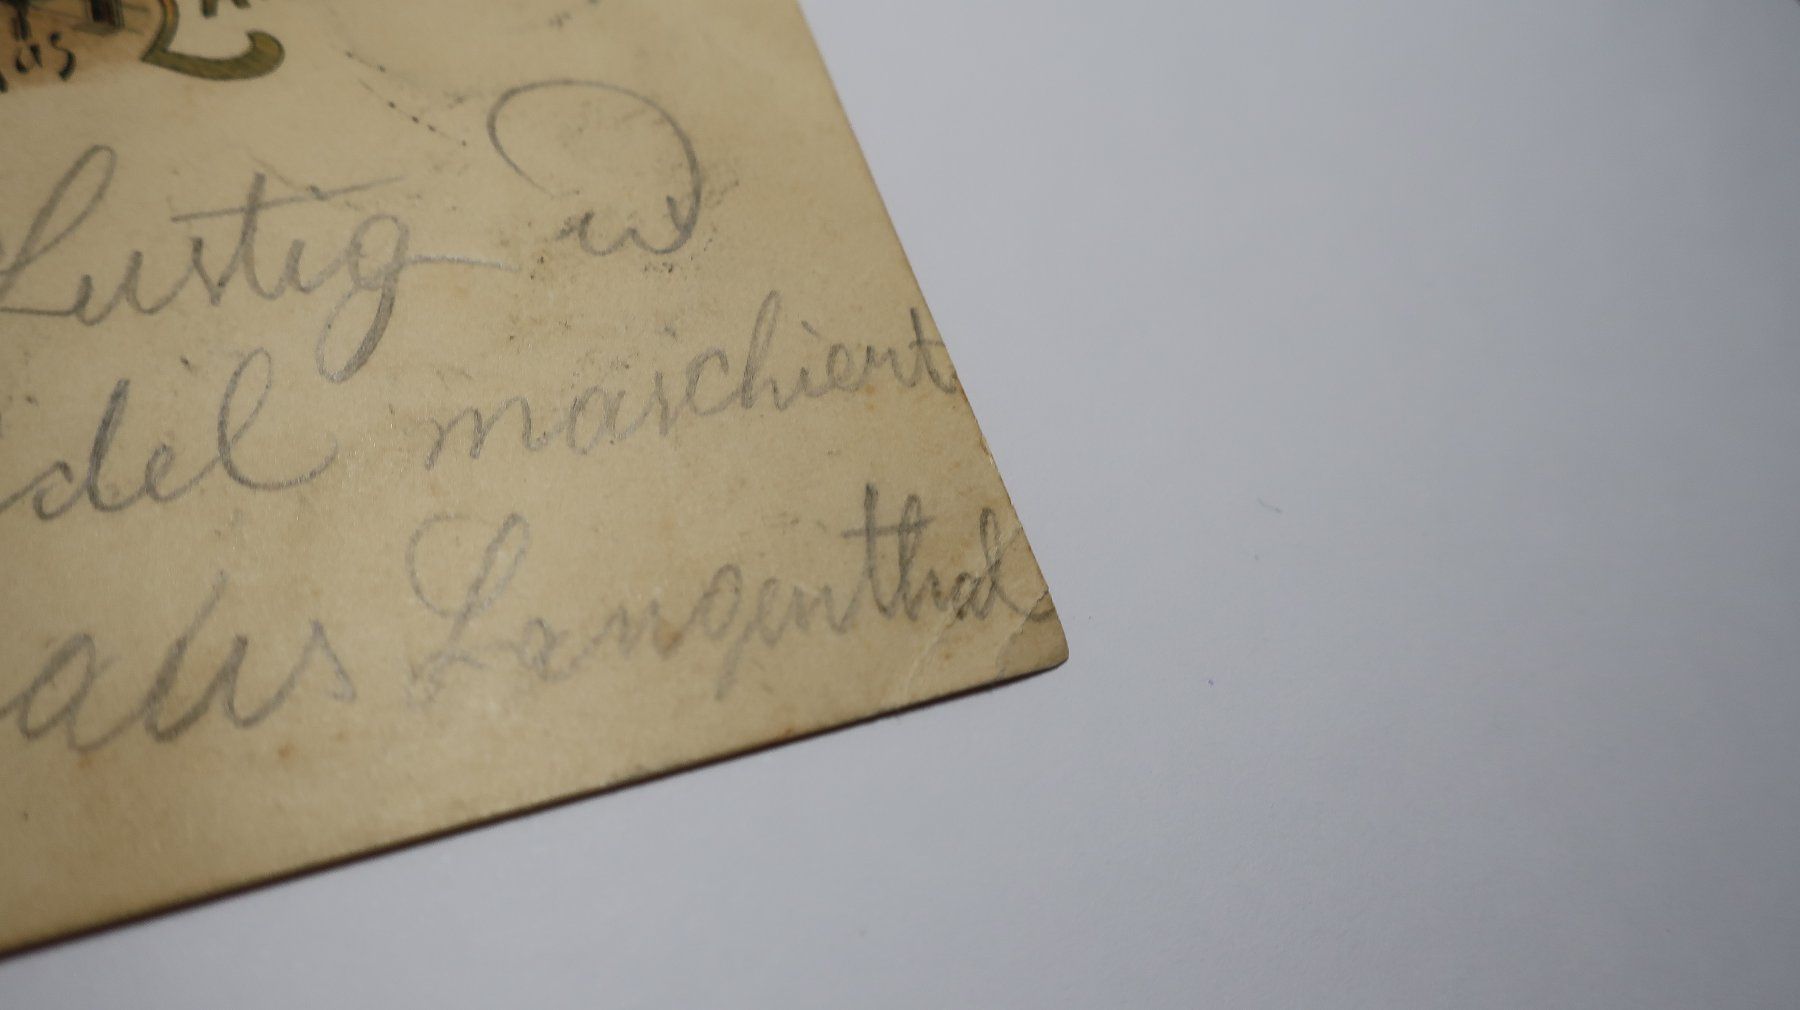 as
Lustig u
del marschiert
aus Langenthal